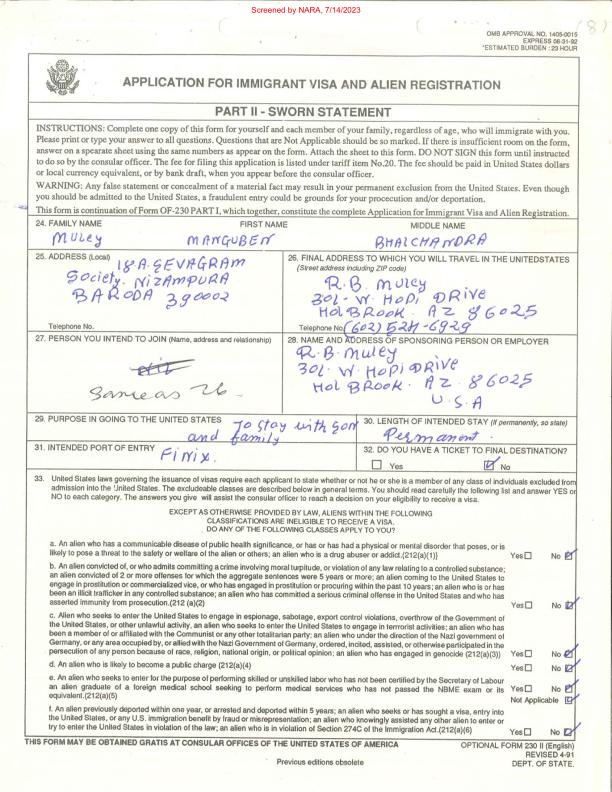 Screened by NARA, 7/14/2023
(8)
OMB APPROVAL NO. 1405-0015
EXPRESS 08-31-92
*ESTIMATED BURDEN : 23 HOUR
APPLICATION FOR IMMIGRANT VISA AND ALIEN REGISTRATION
PART II - SWORN STATEMENT
INSTRUCTIONS: Complete one copy of this form for yourself and each member of your family, regardless of age, who will immigrate with you.
Please print or type your answer to all questions. Questions that are Not Applicable should be so marked. If there is insufficient room on the form,
answer on a spearate sheet using the same numbers as appear on the form. Attach the sheet to this form. DO NOT SIGN this form until instructed
to do so by the consular officer. The fee for filing this application is listed under tariff item No.20. The fee should be paid in United States dollars
or local currency equivalent, or by bank draft, when you appear before the consular officer.
WARNING: Any false statement or concealment of a material fact may result in your permanent exclusion from the United States. Even though
you should be admitted to the United States, a fraudulent entry could be grounds for your procecution and/or deportation.
This form is continuation of Form OF-230 PART I, which together, constitute the complete Application for Immigrant Visa and Alien Registration.
24. FAMILY NAME FIRST NAME MIDDLE NAME
MULEY MANGUBEN BHALCHANDRA
25. ADDRESS (Local)
18 A. SEVAGRAM
Society. NIZAMPURA
BARODA 390002
Telephone No.
26. FINAL ADDRESS TO WHICH YOU WILL TRAVEL IN THE UNITEDSTATES
(Street address including ZIP code)
R.B. Muley
301. W. HOPI DRIVE
HOLBROOK. AZ 86025
Telephone No. (602) 524-6929
27. PERSON YOU INTEND TO JOIN (Name, address and relationship)
Same as 26
28. NAME AND ADDRESS OF SPONSORING PERSON OR EMPLOYER
R.B. Muley
301. W HOPI DRIVE
HOLBROOK. AZ. 86025
U.S.A
29. PURPOSE IN GOING TO THE UNITED STATES
To stay with son
and family
30. LENGTH OF INTENDED STAY (If permanently, so state)
Permanent.
31. INTENDED PORT OF ENTRY
FINIX.
32. DO YOU HAVE A TICKET TO FINAL DESTINATION?
Yes No
33. United States laws governing the issuance of visas require each applicant to state whether or not he or she is a member of any class of individuals excluded from
admission into the United States. The excludable classes are described below in general terms. You should read carefully the following list and answer YES or
NO to each category. The answers you give will assist the consular officer to reach a decision on your eligibility to receive a visa.
EXCEPT AS OTHERWISE PROVIDED BY LAW, ALIENS WITHIN THE FOLLOWING
CLASSIFICATIONS ARE INELIGIBLE TO RECEIVE A VISA.
DO ANY OF THE FOLLOWING CLASSES APPLY TO YOU?
a. An alien who has a communicable disease of public health significance, or has or has had a physical or mental disorder that poses, or is
likely to pose a threat to the safety or welfare of the alien or others; an alien who is a drug abuser or addict.{212(a)(1)} Yes No
b. An alien convicted of, or who admits committing a crime involving moral turpitude, or violation of any law relating to a controlled substance;
an alien convicted of 2 or more offenses for which the aggregate sentences were 5 years or more; an alien coming to the United States to
engage in prostitution or commercialized vice, or who has engaged in prostitution or procuring within the past 10 years; an alien who is or has
been an illicit trafficker in any controlled substance; an alien who has committed a serious criminal offense in the United States and who has
asserted immunity from prosecution.(212 (a)(2) Yes No
c. Alien who seeks to enter the United States to engage in espionage, sabotage, export control violations, overthrow of the Government of
the United States, or other unlawful activity, an alien who seeks to enter the United States to engage in terrrorist activities; an alien who has
been a member of or affiliated with the Communist or any other totalitarian party; an alien who under the direction of the Nazi government of
Germany, or any area occupied by, or allied with the Nazi Government of Germany, ordered, incited, assisted, or otherwise participated in the
persecution of any person because of race, religion, national origin, or political opinion; an alien who has engaged in genocide (212(a)(3)) Yes No
d. An alien who is likely to become a public charge (212(a)(4) Yes No
e. An alien who seeks to enter for the purpose of performing skilled or unskilled labor who has not been certified by the Secretary of Labour
an alien graduate of a foreign medical school seeking to perform medical services who has not passed the NBME exam or its Yes No
equivalent.(212(a)(5) Not Applicable
f. An alien previously deported within one year, or arrested and deported within 5 years; an alien who seeks or has sought a visa, entry into
the United States, or any U.S. immigration benefit by fraud or misrepresentation; an alien who knowingly assisted any other alien to enter or
try to enter the United States in violation of the law; an alien who is in violation of Section 274C of the Immigration Act.(212(a)(6) Yes No
THIS FORM MAY BE OBTAINED GRATIS AT CONSULAR OFFICES OF THE UNITED STATES OF AMERICA
OPTIONAL FORM 230 II (English)
REVISED 4-91
DEPT. OF STATE.
Previous editions obsolete